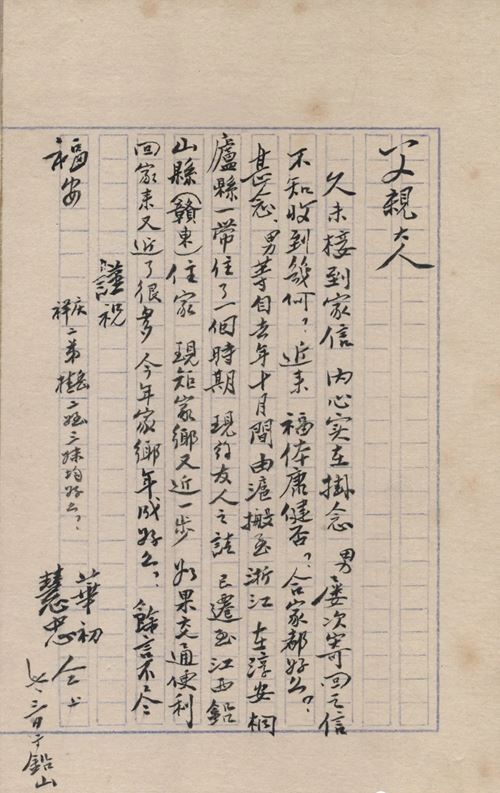 父親大人
久未接到家信 內心实在掛念 男屡次寄回之信
不知收到幾何？近来 福体康健否？合家都好么？
甚念、男等自去年十月間由滬搬至浙江 在淳安桐
廬縣一带住了一個時期 現約友人之請 已遷至江西鉛
山縣（贛東）住家 現距家鄉又近一步 如果交通便利
回家来又近了很多 今年家鄉年成好么？ 餘言不尽
謹祝
福安
庆祥二弟 二姪三妹均好么？
華初
慧忠 仝上
七、三日于鉛山